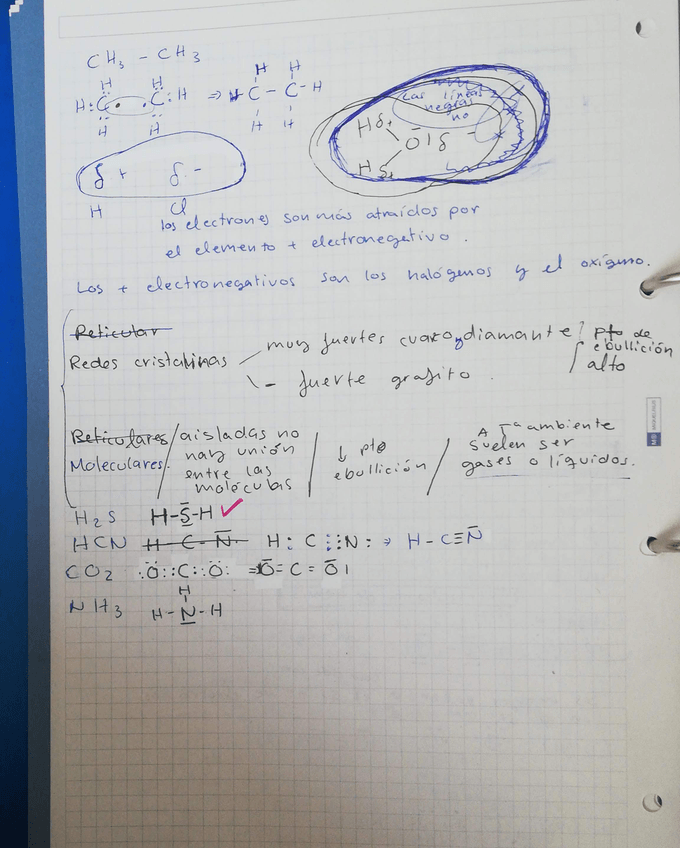 CH3 - CH3
H H H H
H:C· ·C:H ⇒ H-C-C-H
H H H H
Las líneas
negras
no
Hδ+
O|δ-
Hδ+
δ+ δ-
H Cl
los electrones son más atraídos por
el elemento + electronegativo.
Los + electronegativos son los halógenos y el oxígeno.
Reticular
Redes cristalinas
muy fuertes cuarzo, diamante
- fuerte grafito.
pto de
ebullición
alto
Reticulares
Moleculares
aisladas no
hay unión
entre las
moléculas
↓ pto
ebullición
A Tª ambiente
suelen ser
gases o líquidos.
H2S H-S̲̅-H ✓
HCN H-C-N̅ H:C⋮⋮N: ⇒ H-C≡N̅
CO2 :Ö::C::Ö: ⇒ |O̅=C=O̅|
H
NH3 H-N̲-H